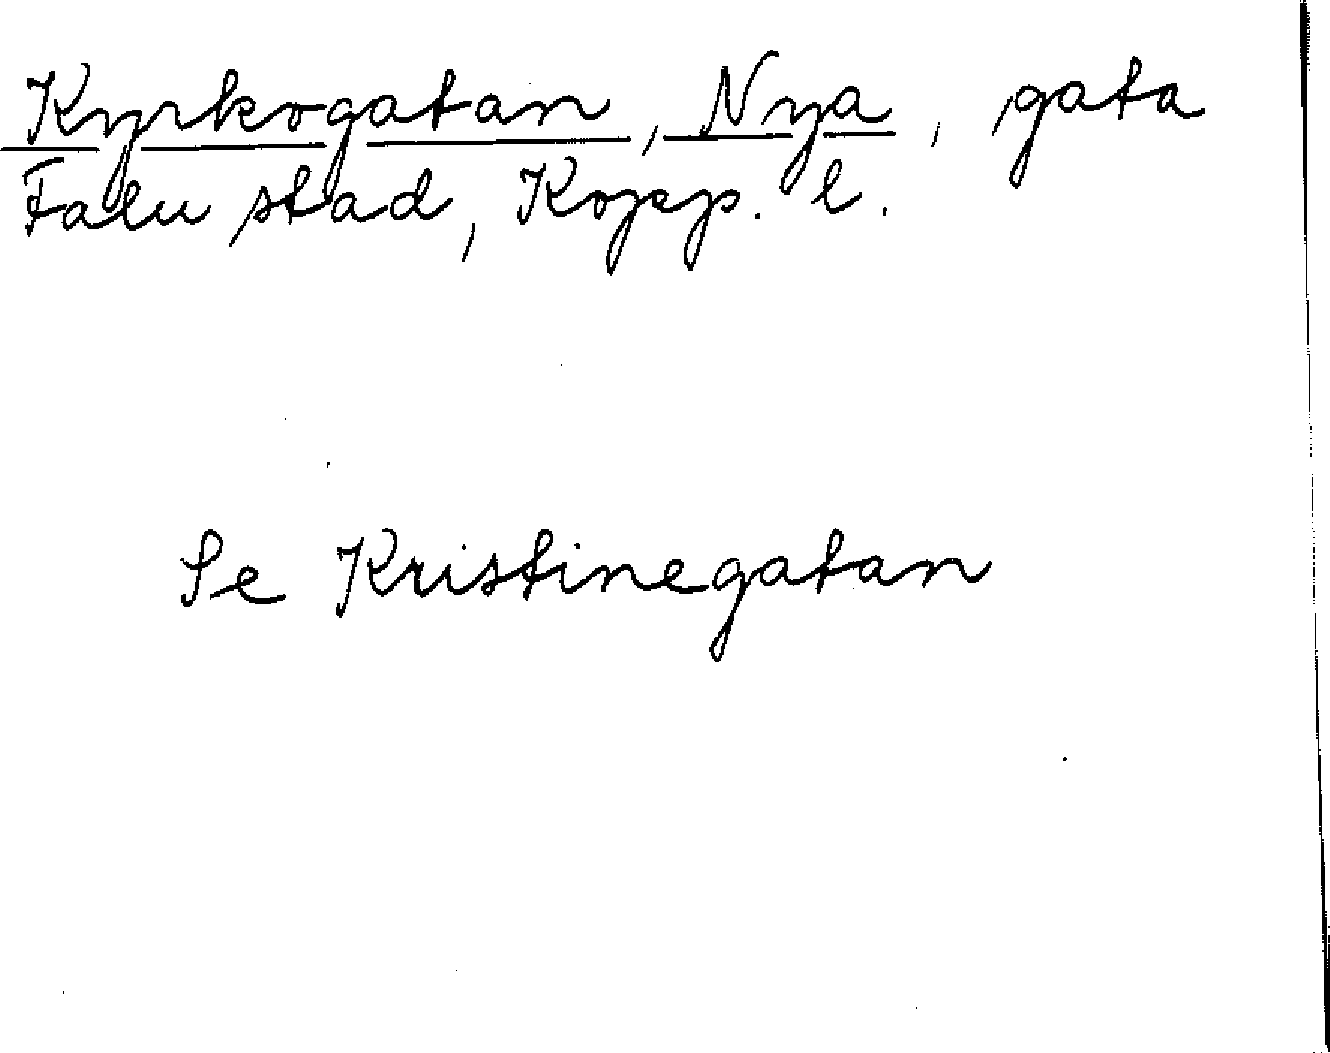 Kyrkogatan, Nya, gata
Falu stad, Kopp. l.
Se Kristinegatan